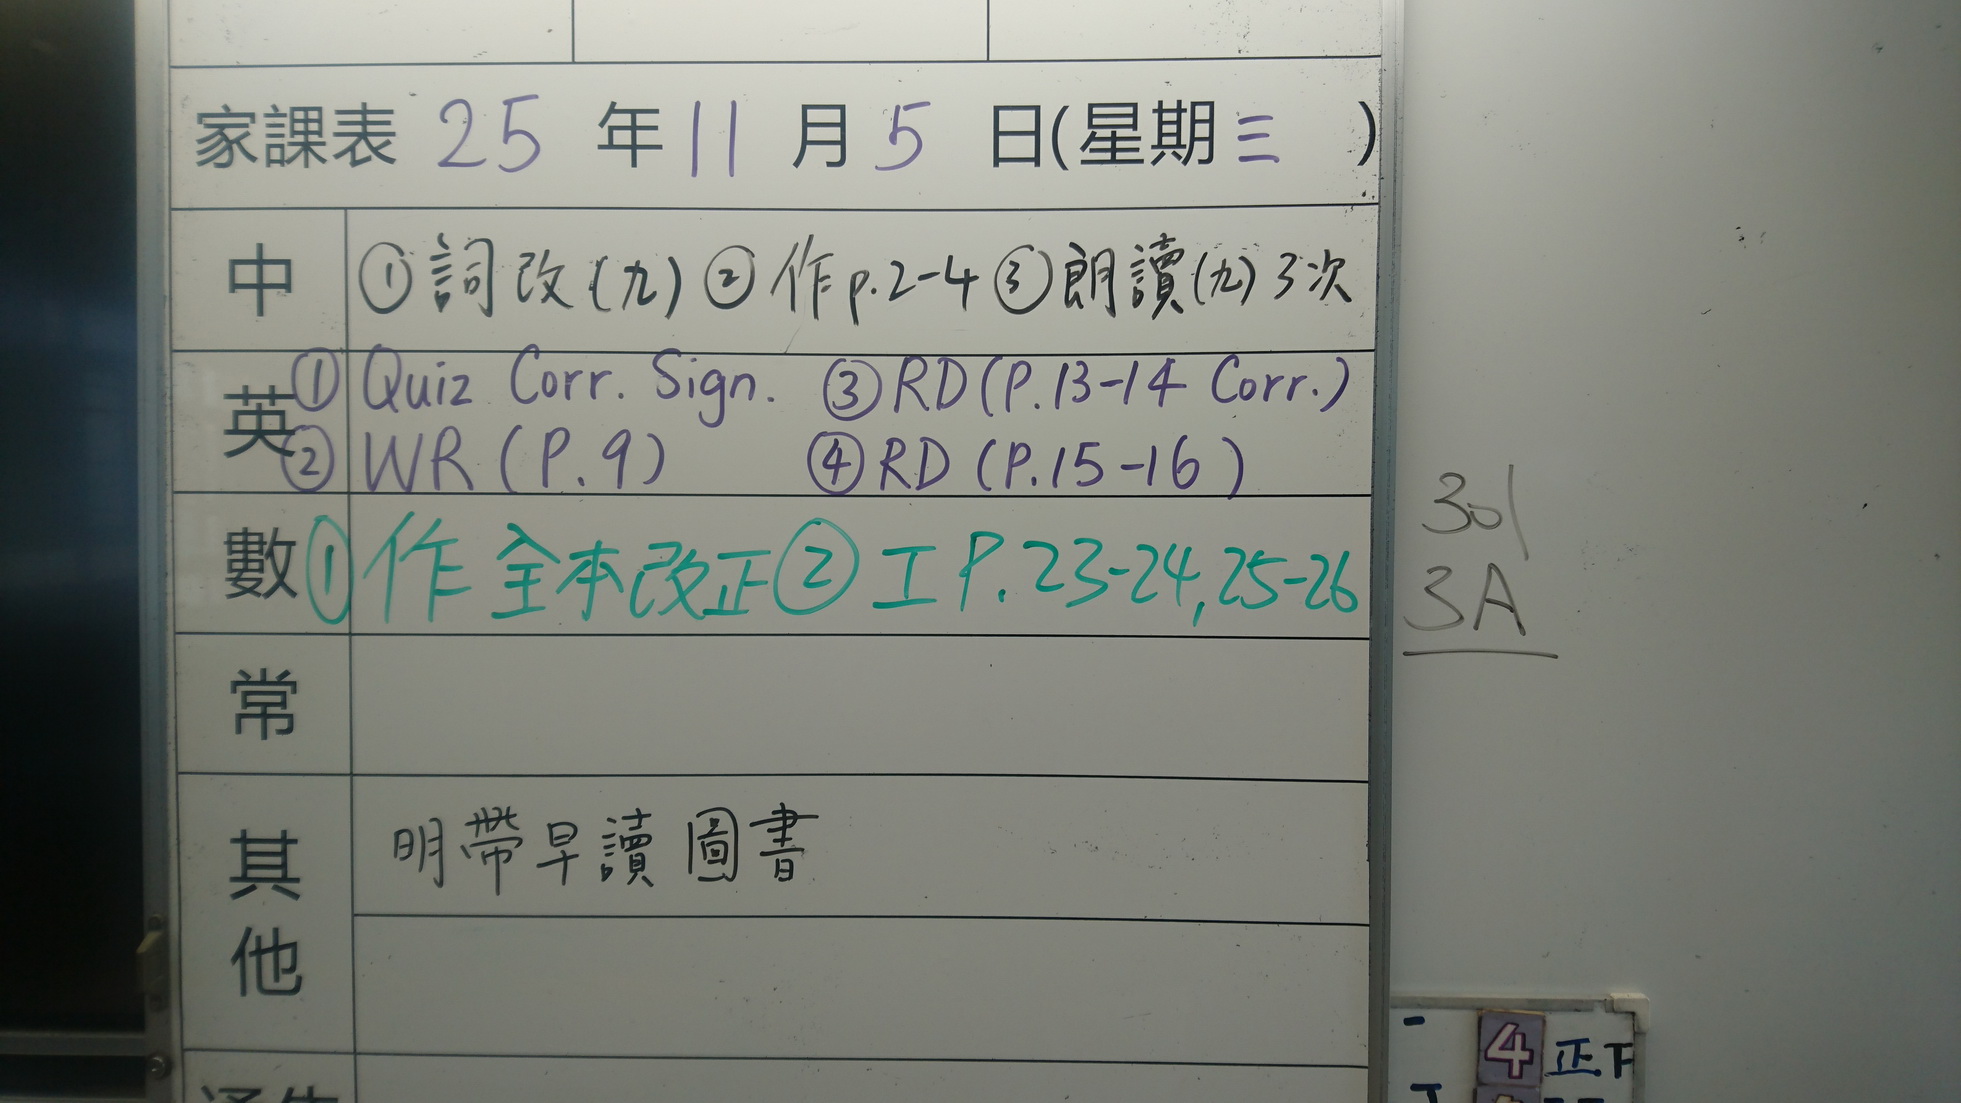 家課表 25 年 11 月 5 日(星期三 )
中 ①詞改(九) ②作p.2-4 ③朗讀(九)3次
英 ① Quiz Corr. Sign. ③RD(P.13-14 Corr.)
② WR (P.9) ④RD (P.15-16)
數 ①作全本改正 ②工P.23-24,25-26
301
3A
常
其他 明帶早讀圖書
4 正下